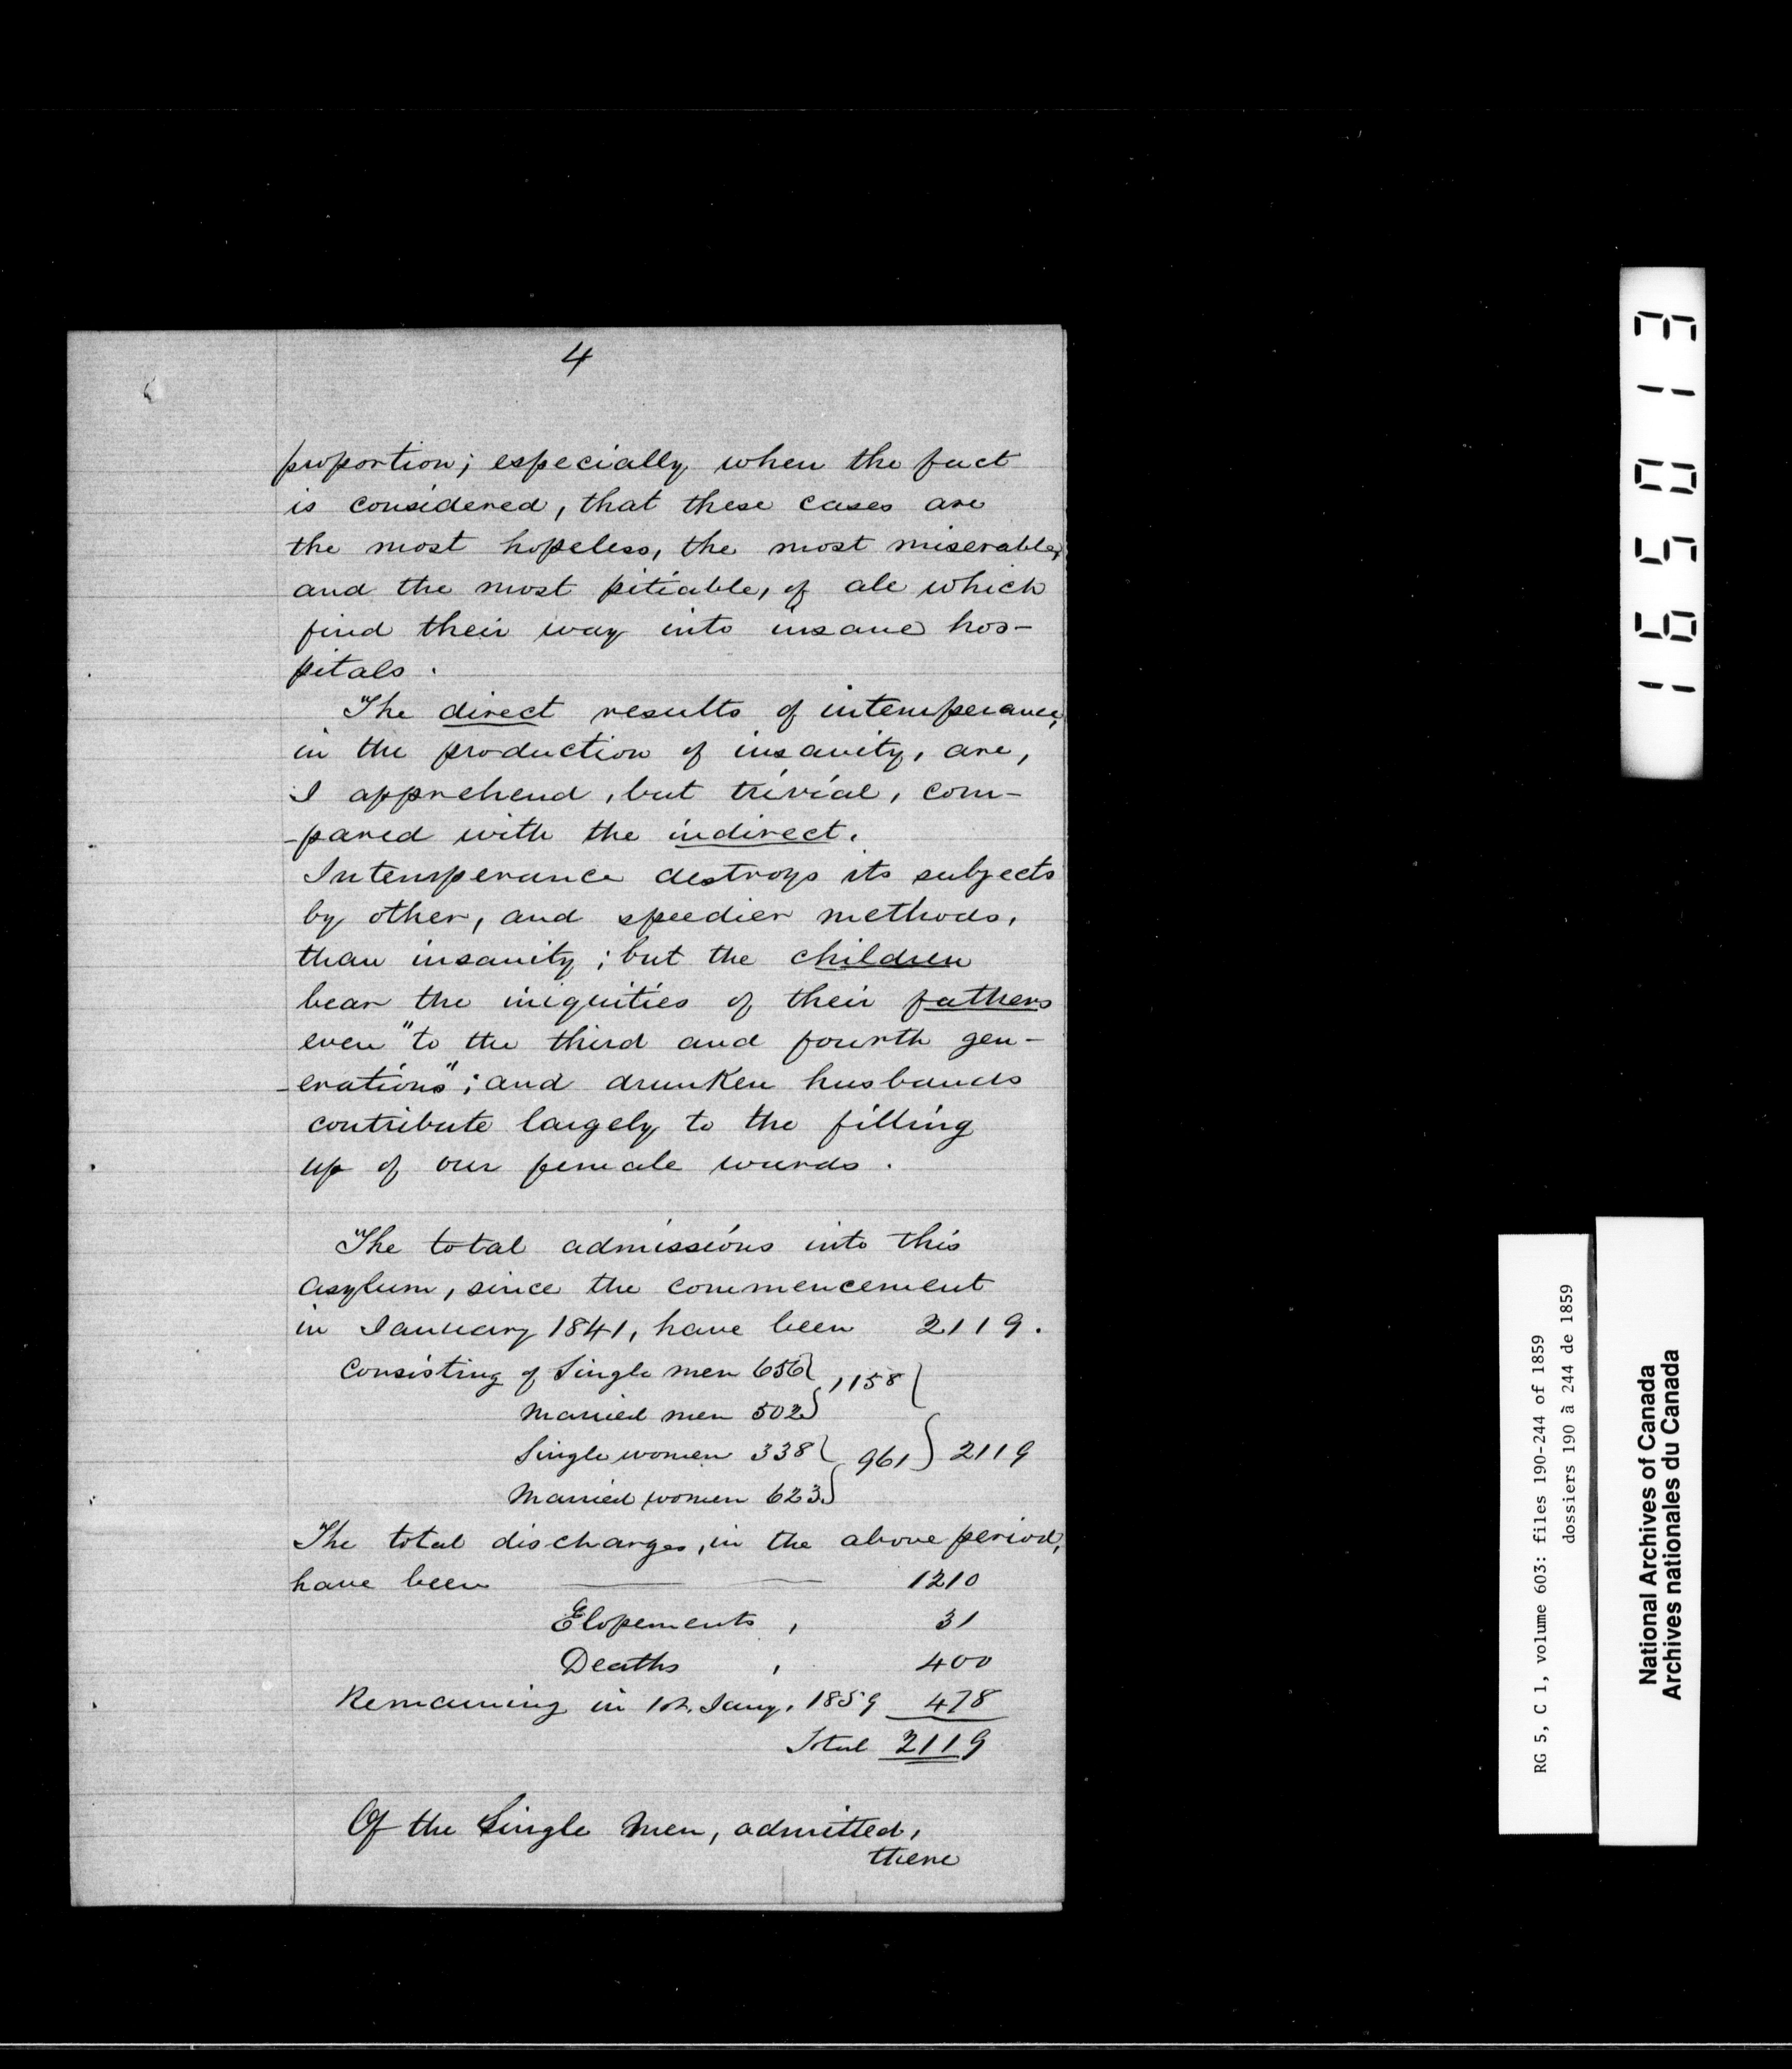 4
proportion; especially when the fact
is considered, that these cases are
the most hopeless, the most miserable,
and the most pitiable, of all which
find their way into insane hos-
pitals.
The direct results of intemperance,
in the production of insanity, are,
I apprehend, but trivial, com-
-pared with the indirect.
Intemperance destroys its subjects
by other, and speedier methods,
than insanity; but the children
bear the iniquities of their fathers
even "to the third and fourth gen-
-erations"; and drunken husbands
contribute largely to the filling
up of our female wards.
The total admissions into this
asylum, since the commencement
in January 1841, have been 2119.
Consisting of Single men 656 } 1158 }
Married men 502 }
Single women 338 } 961 } 2119
Married women 623 }
The total discharges, in the above period,
have been — — 1210
Elopements , 31
Deaths , 400
Remaining in 1st. Jany. 1859 478
Total 2119
Of the Single Men, admitted,
there
165013
RG 5, C 1, volume 603: files 190-244 of 1859
dossiers 190 à 244 de 1859
National Archives of Canada
Archives nationales du Canada